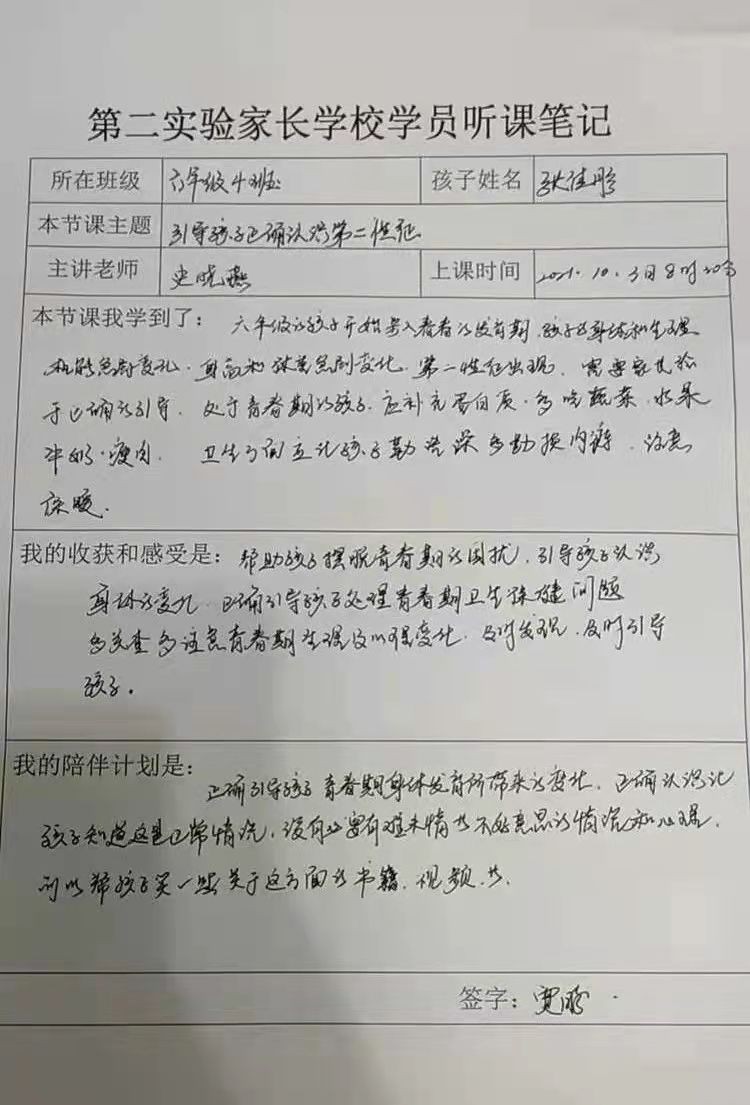 第二实验家长学校学员听课笔记
所在班级 六年级4班 孩子姓名 张佳彤
本节课主题 引导孩子正确认识第二性征
主讲老师 史晓燕 上课时间 2021.10.3日8时20分
本节课我学到了: 六年级的孩子开始步入青春的发育期,孩子的身体和生理
机能急剧变化.身高和体重急剧变化.第二性征出现.需要家长给
于正确的引导.处于青春期的孩子.应补充蛋白质.多吃蔬菜.水果
牛奶.瘦肉. 卫生方面应让孩子勤洗澡多勤换内裤.注意
保暖.
我的收获和感受是: 帮助孩子摆脱青春期的困扰,引导孩子认识
身体的变化.正确引导孩子处理青春期卫生保健问题
多关查多注意青春期生理及心理变化.及时发现.及时引导
孩子。
我的陪伴计划是:
正确引导孩子青春期身体发育所带来的变化.正确认识让
孩子知道这是正常情况,没有必要有难未情 不好意思的情况和心理.
可以帮孩子买一些关于这方面的书籍.视频.
签字: